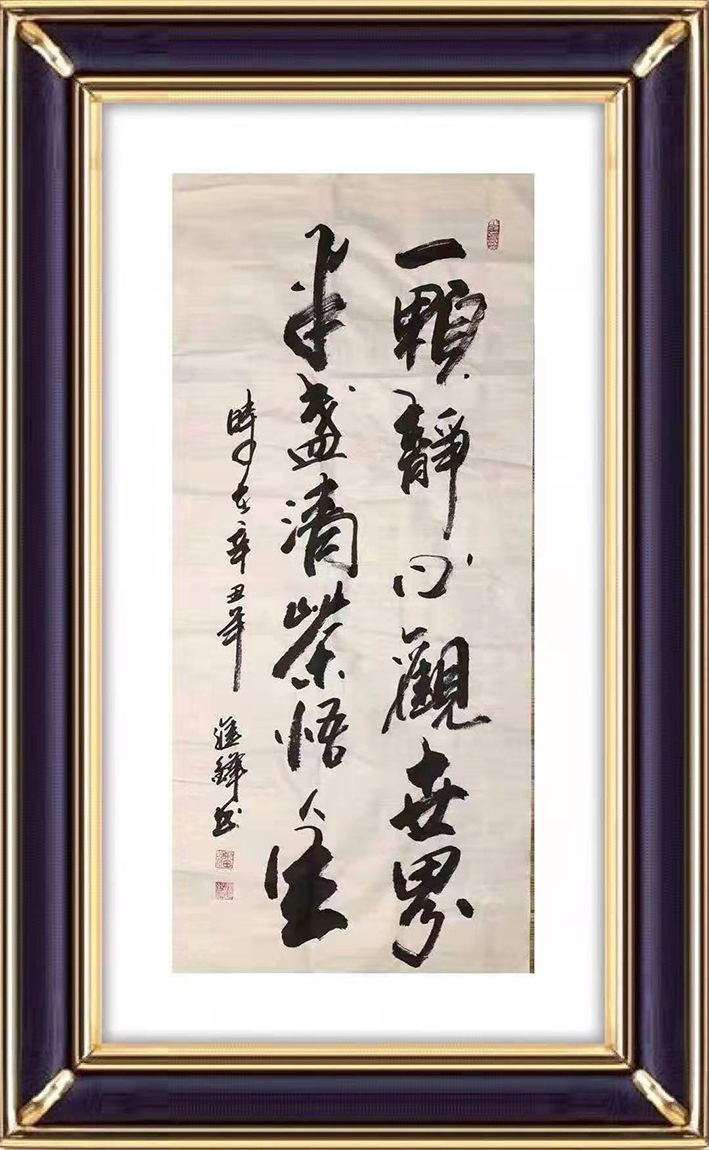 一顆靜心觀世界
半盞清茶悟人生
時在辛丑年
书